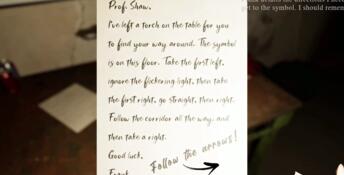 Prof. Shaw,
details the directions I
I've left a torch on the table for you
get to the symbol. I should remem
to find your way around. The symbol
is on this floor. Take the first left,
ignore the flickering light, then take
the first right, go straight, then right.
Follow the corridor all the way, and
then take a right.
Good luck,
Follow the arrows!